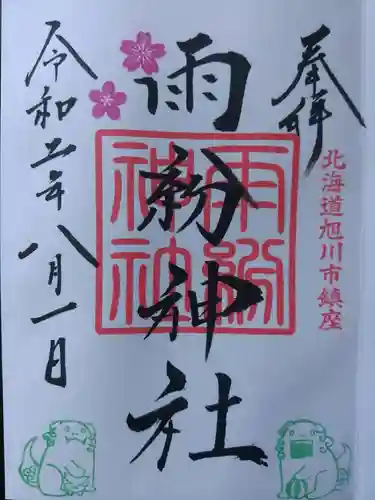 奉拝
北海道旭川市鎮座
雨紛神社
雨紛神社
令和二年八月一日